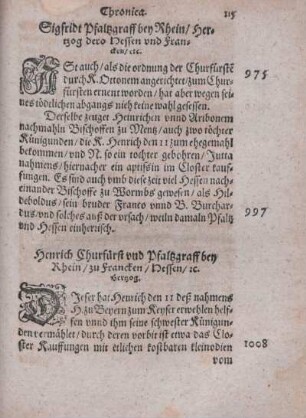 Chronica. 215
Sigfridt Pfaltzgraff bey Rhein / Her-
tzog dero Hessen vnd Fran-
cken / etc.
ISt auch / als die ordnung der Churfürstē 975
durch K. Ottonem angerichtet / zum Chur-
fürsten ernent worden / har aber wegen sei-
nes tödelichen abgangs nich keine wahl gesessen.
Derselbe zeuget Heinrichen vnnd Aribonem
nachmahln Bischoffen zu Mentz / auch zwo töchter
Kunigunden / die K. Henrich den 11 zum ehegemahl
bekommen / vnd N. so ein tochter gebohren / Jutta
nahmens / hiernacher ein aptissin im Closter kauf-
fungen. Es sind auch vmb diese zeit viel Hessen nach-
einander Bischoffe zu Wormbs gewesen / als Hil-
deboldus / sein bruder Franco vnnd B. Burchar-
dus / vnd solches auß der vrsach / weiln damaln Pfaltz 997
vnd Hessen einherisch.
Henrich Churfürst vnd Pfaltzgraff bey
Rhein / zu Francken / Hessen / ec.
Hertzog.
DJeser hat Heinrich den 11 deß nahmens
H. zu Beyern zum Keyser erwehlen helf-
fen vnnd ihm seine schwester Künigun-
den vermählet / durch deren vorbit ist etwa das Clo- 1008
ster Kauffungen mit etlichen kostbaren kleinodien
vom